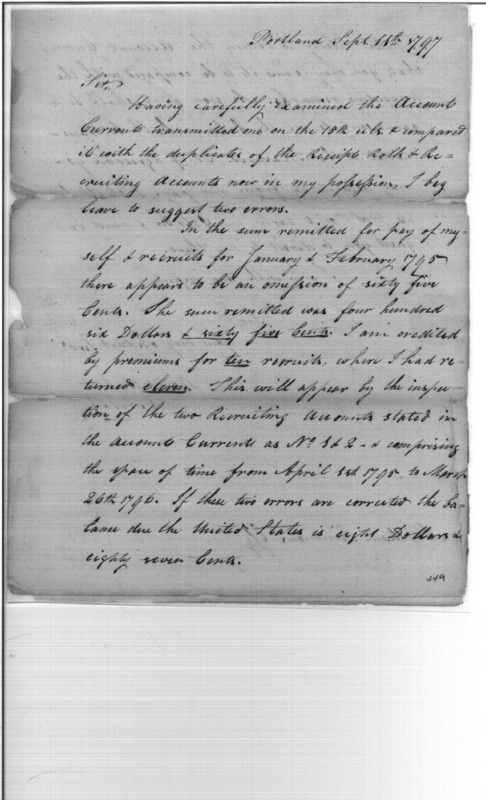 Portland Sept. 11th 1797
Sir,
Having carefully examined the Account
Current transmitted me on the 15th ulto. & compared
it with the duplicates of the Receipts Rolls & Re-
cruiting Accounts now in my possession, I beg
leave to suggest two errors.
In the sum remitted for pay of my-
self & recruits for January & February 1795
there appears to be an omission of sixty five
Cents. The sum remitted was four hundred
six Dollars & sixty five Cents. I am credited
by premiums for ten recruits, where I had re-
turned eleven. This will appear by the inspec-
tion of the two Recruiting Accounts stated in
the Account Currents as No. 1 & 2 - & comprising
the space of time from April 1st 1795 to March
26th 1796. If these two errors are corrected the ba-
lance due the United States is eight Dollars &
eighty seven Cents.